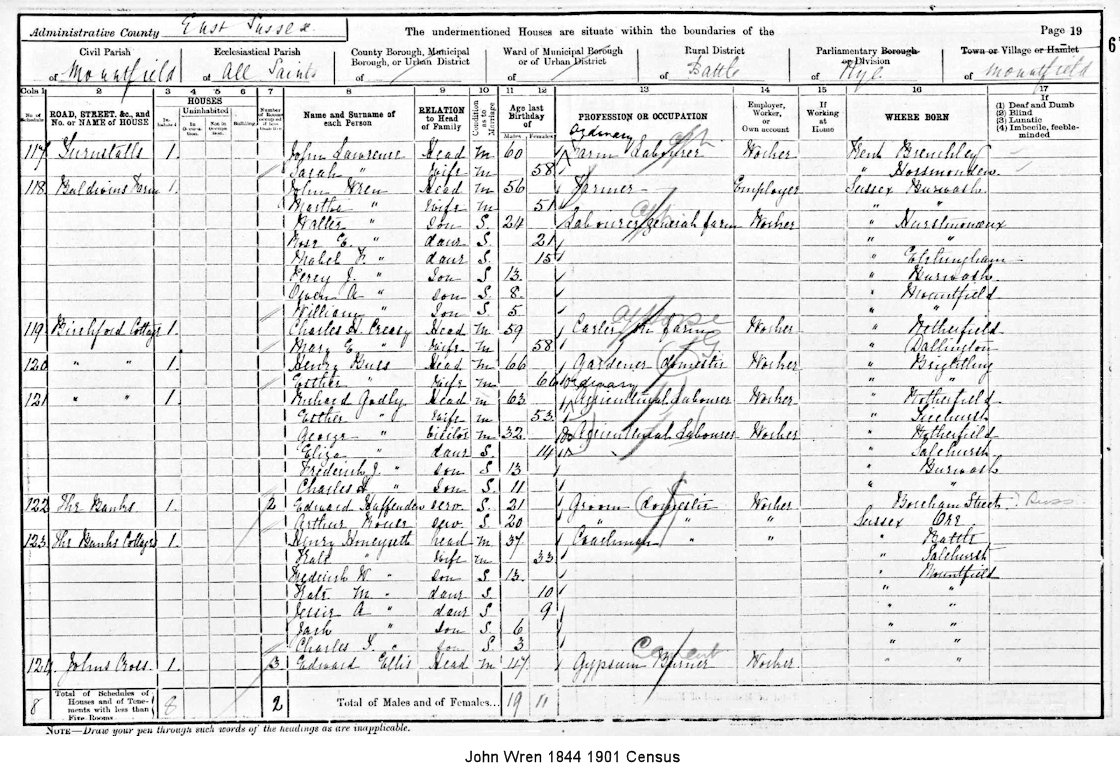 Administrative County East Sussex
The undermentioned Houses are situate within the boundaries of the
Page 19
Civil Parish
of Mountfield
Ecclesiastical Parish
of All Saints
County Borough, Municipal Borough, or Urban District
of
Ward of Municipal Borough or of Urban District
of
Rural District
of Battle
Parliamentary Borough or Division
of Rye
Town or Village or Hamlet
of Mountfield
Cols 1 2 3 4 5 6 7 8 9 10 11 12 13 14 15 16 17
No. of Schedule
ROAD, STREET, &c., and No. or NAME of HOUSE
HOUSES
Uninhabited
Name and Surname of each Person
RELATION to Head of Family
Condition as to Marriage
Age last Birthday of
Males Females
PROFESSION OR OCCUPATION
Employer, Worker, or Own account
If Working at Home
WHERE BORN
If
(1) Deaf and Dumb
(2) Blind
(3) Lunatic
(4) Imbecile, feeble-minded
Ordinary
117 1 John Lawrence Head M 60 Farm Labourer Worker Kent Brenchley
Sarah " Wife M 58 " Horsmonden
118 Baldwins Farm 1 John Wren Head M 56 Farmer Employer Sussex Burwash
Martha " Wife M 51 " "
Walter " Son S 24 Labourer general farm Worker " Hurstmonceux
Rose E. " daur S. 21 " "
Mabel F. " daur S. 15 " Etchingham
Percy J. " Son S. 13 " Burwash
Owen A " son S. 8 " Mountfield
William " Son S. 5 " "
119 Birchford Cottage 1 Charles H Creasy Head M 59 Carter on farm Worker " Netherfield
Mary E " Wife M 58 " Dallington
120 " " 1 Henry Buss Head M 66 Gardener (domestic) Worker " Brightling
Esther " Wife M 66 " "
Ordinary
121 " " 1 Richard Godly Head M 63 Agricultural Labourer Worker " Netherfield
Esther " Wife M 53 " Ticehurst
George " Visitor M 32 Agricultural Labourer Worker " Netherfield
Eliza " daur S 14 " Salehurst
Frederick J. " son S 13 " Burwash
Charles " Son S. 11 " "
122 The Banks 1 2 Edward Haffenden serv. S. 21 Groom (domestic) Worker Boreham Street
Arthur serv. S. 20 " " " Sussex Ore
123 The Banks Cottages 1 Henry Honeysett head M 37 Coachman " " " Battle
Kate " Wife M 33 " Salehurst
Frederick W " son S. 13 " Mountfield
Kate M " daur S 10 " "
Jessie A " daur S 9 " "
Jack " Son S 6 " "
Charles " Son S 3 " "
124 Johns Cross 1 3 Edward Ellis Head M 47 Gypsum Burner Worker " "
Cement
8 Total of Schedules of Houses and of Tenements with less than Five Rooms 8 2 Total of Males and of Females... 19 11
NOTE—Draw your pen through such words of the headings as are inapplicable.
John Wren 1844 1901 Census